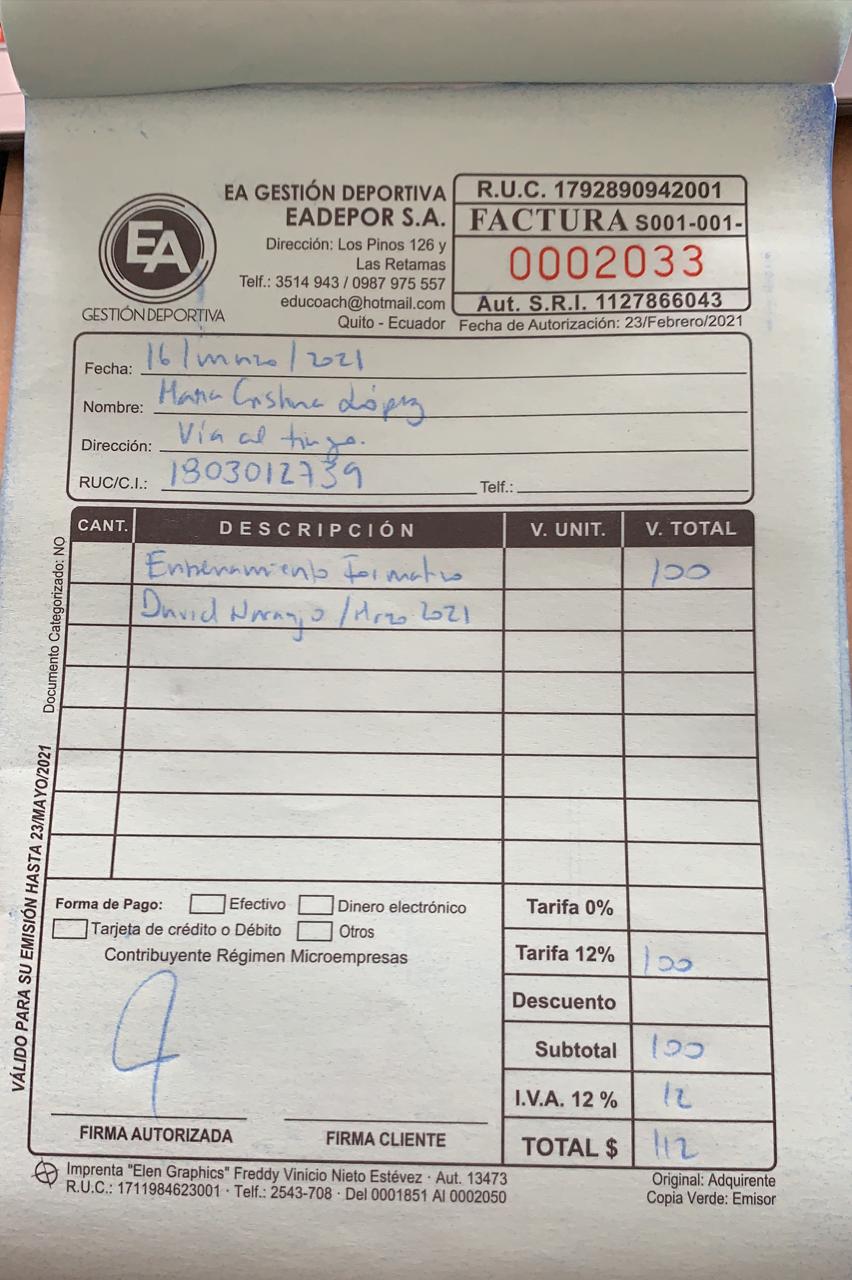 EA
GESTIÓN DEPORTIVA
EA GESTIÓN DEPORTIVA
EADEPOR S.A.
Dirección: Los Pinos 126 y
Las Retamas
Telf.: 3514 943 / 0987 975 557
educoach@hotmail.com
Quito - Ecuador
R.U.C. 1792890942001
FACTURA S001-001-
0002033
Aut. S.R.I. 1127866043
Fecha de Autorización: 23/Febrero/2021
Fecha: 16/marzo/2021
Nombre: Maria Cristina López
Dirección: Vía al tingo.
RUC/C.I.: 1803012739 Telf.:
CANT. DESCRIPCIÓN V. UNIT. V. TOTAL
Entrenamiento Formativo 100
David Naranjo / Marzo 2021
Documento Categorizado: NO
VÁLIDO PARA SU EMISIÓN HASTA 23/MAYO/2021
Forma de Pago: Efectivo Dinero electrónico
Tarjeta de crédito o Débito Otros
Contribuyente Régimen Microempresas
Tarifa 0%
Tarifa 12% 100
Descuento
Subtotal 100
I.V.A. 12 % 12
TOTAL $ 112
FIRMA AUTORIZADA FIRMA CLIENTE
Imprenta "Elen Graphics" Freddy Vinicio Nieto Estévez · Aut. 13473
R.U.C.: 1711984623001 · Telf.: 2543-708 · Del 0001851 Al 0002050
Original: Adquirente
Copia Verde: Emisor